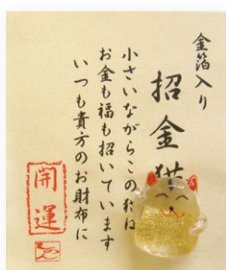 金箔入り
招金猫
小さいながらこの猫は
お金も福も招いています
いつも貴方のお財布に
開運